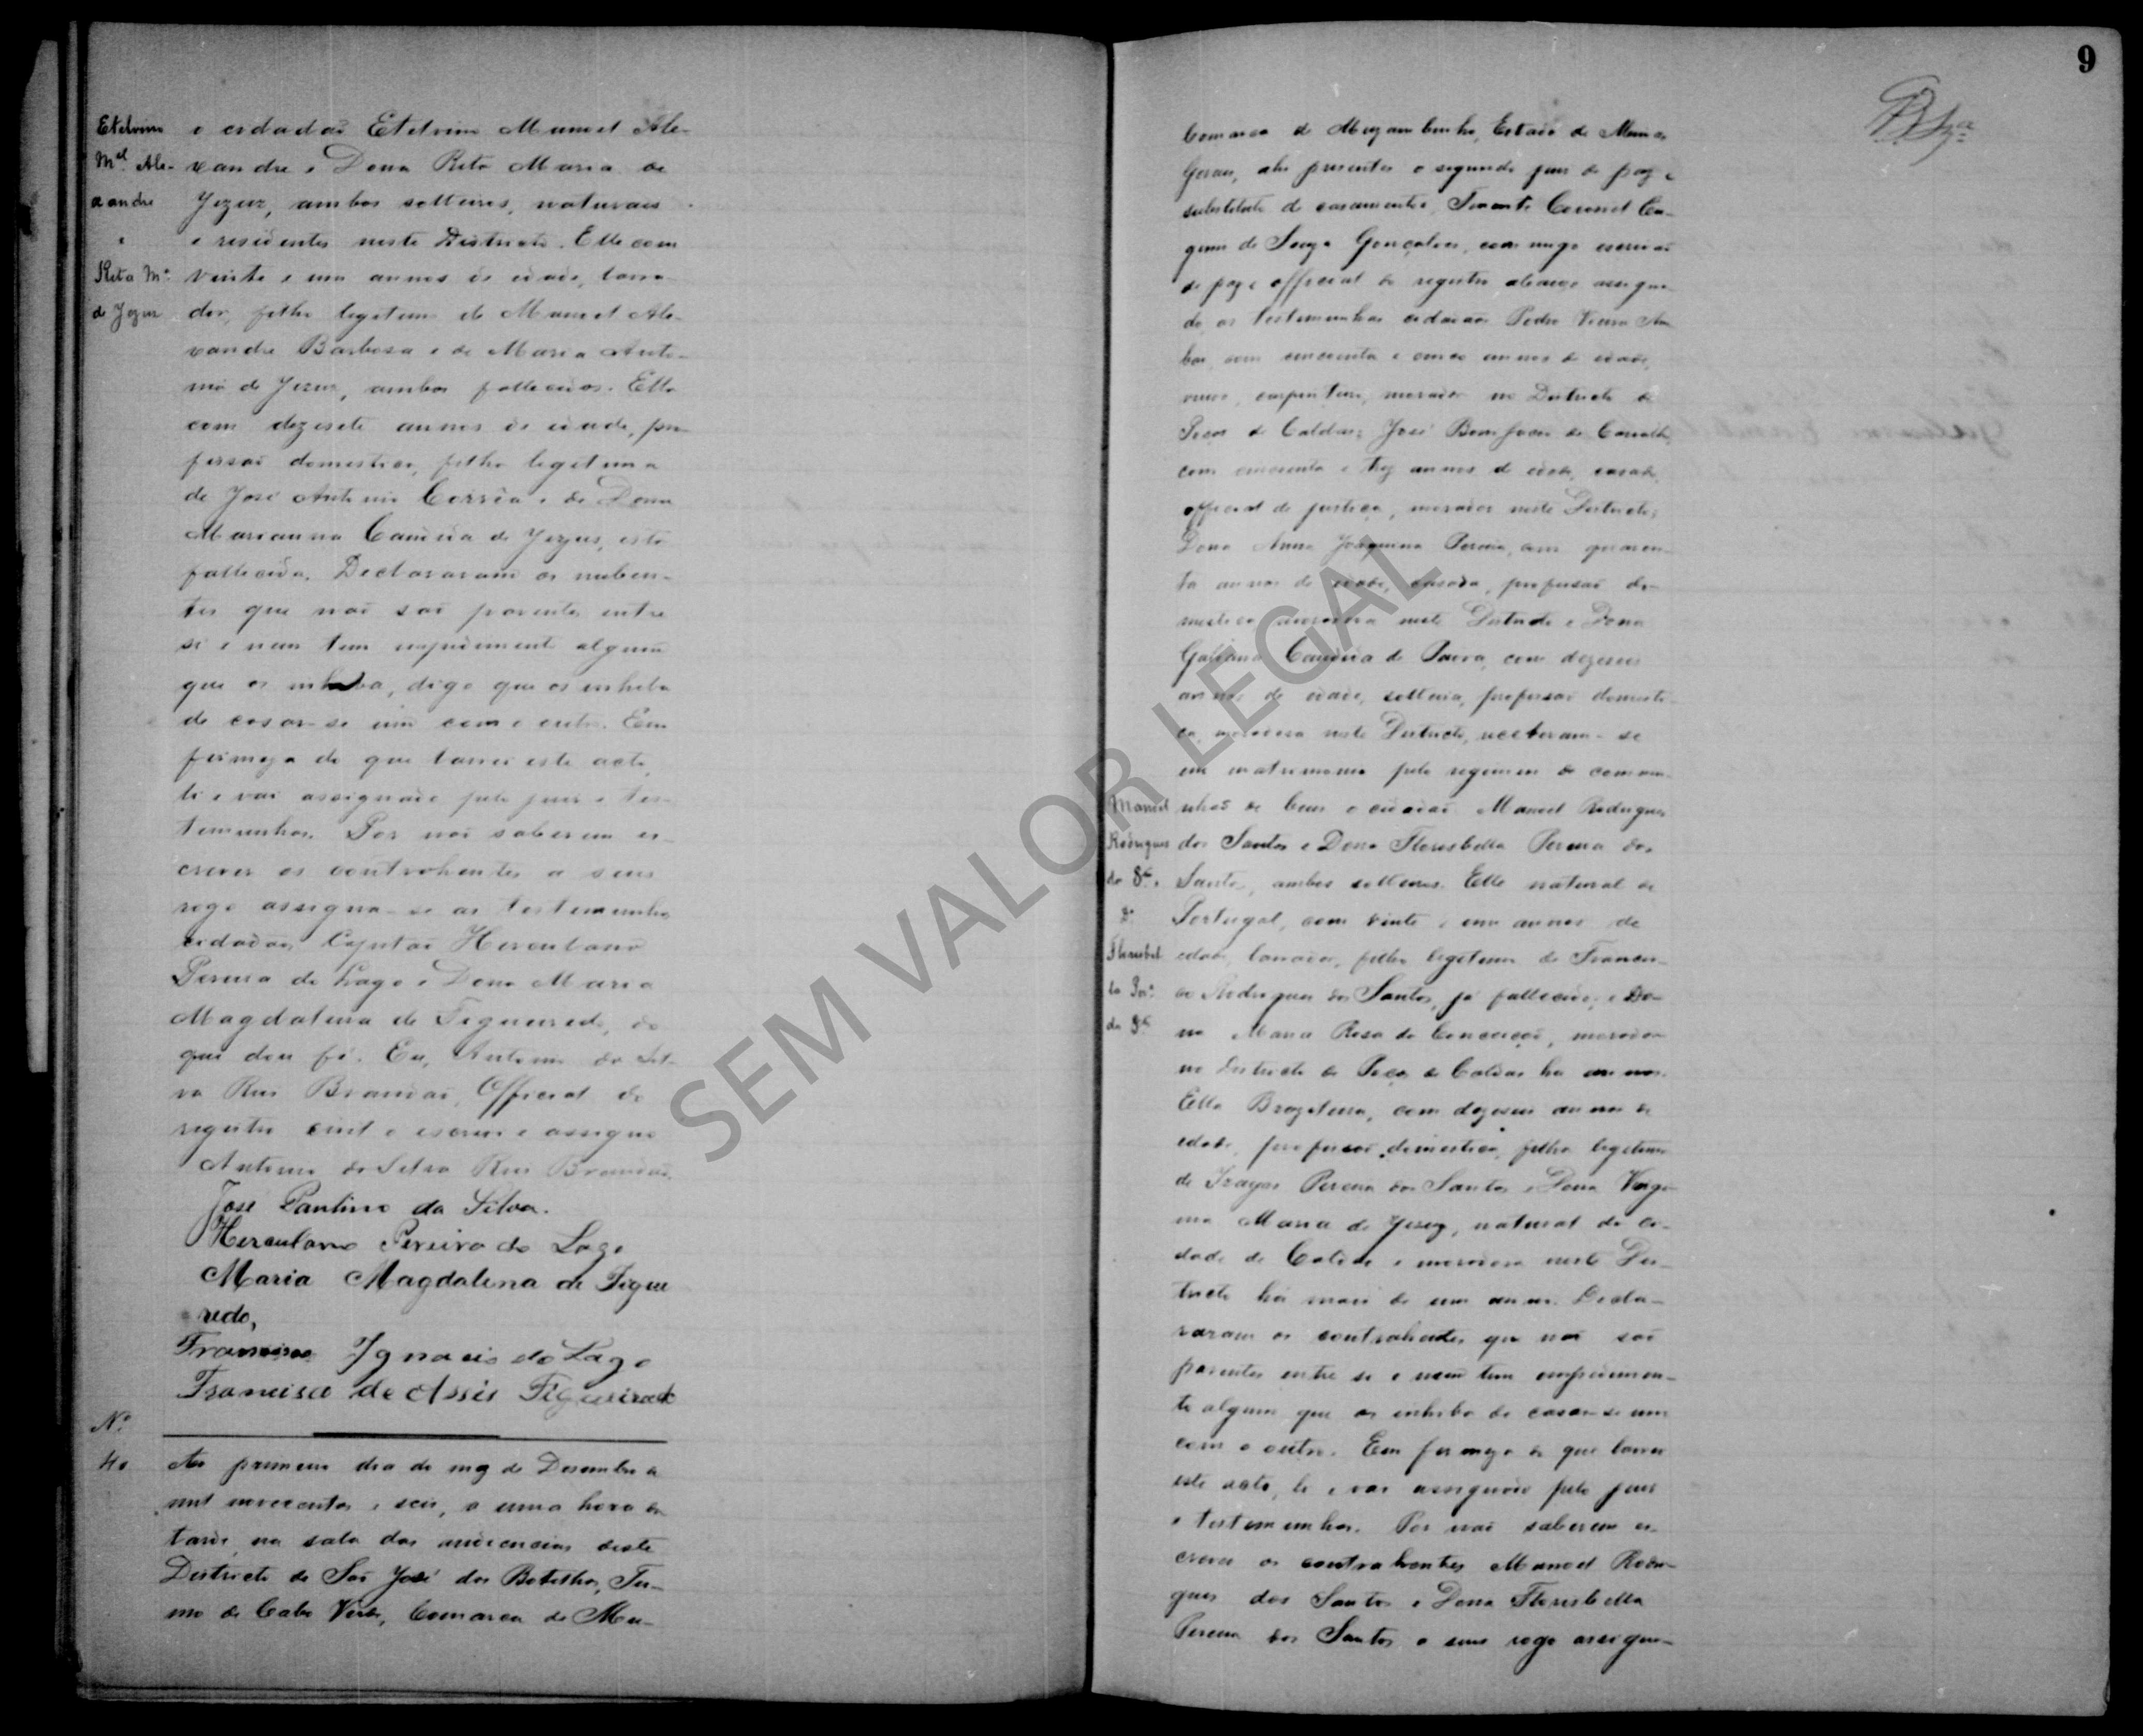 Etelvino
Mel Ale-
xandre
e
Rita Ma
de Jezus
o cidadaõ Etelvino Manoel Ale-
xandre e Dona Rita Maria de
Jezus, ambos solteiros, naturaes
e residentes neste Districto. Elle com
vinte e um annos de idade, lavra-
dor, filho legitimo de Manoel Ale-
xandre Barbosa e de Maria Anto-
nia de Jezus, ambos fallecidos. Ella
com dezesete annos de idade, pro-
fissaõ domestica, filha legitima
de José Antonio Corrêa e de Dona
Marianna Candida de Jezus, esta
fallecida. Declararam os nuben-
tes que naõ saõ parentes entre
si e nem tem impedimento algum
que os inhiba, digo que os inhiba
de casar-se um com o outro. Em
firmeza do que lavrei este acto,
li e vai assignado pelo juiz e tes-
temunhas. Por naõ saberem es-
crever os contrahentes a seus
rogo assigna-se as testemunhas
cidadaõs Capitaõ Herculano
Pereira do Lago e Dona Maria
Magdalena de Figueiredo, do
que dou fé. Eu, Antonio da Sil-
va Reis Brandaõ, Official do
registro civil o escrevi e assigno
Antonio da Silva Reis Brandaõ.
José Paulino da Silva.
Herculano Pereira do Lago
Maria Magdalena de Figue
redo,
Francisco Ignacio do Lago
Francisco de Assis Figueiredo
No
40
Ao primeiro dia do mez de Desembro de
mil novecentos e seis, a uma hora da
tarde, na sala das audiencias deste
Districto de Saõ José dos Botelhos, Ter-
mo de Cabo Verde, Comarca de Mu-
9
Comarca de Muzambinho, Estado de Minas
Geraes, ahi presentes o segundo juiz de paz e
substituto de casamentos, Tenente Coronel
de Souza Gonçalves, commigo escrivaõ
de paz e official do registro abaixo assigna-
do, as testemunhas cidadaõs Pedro Vieira
com cincoenta e cinco annos de idade,
viuvo, carpinteiro, morador no Districto de
Poços de Caldas; José Bomfacio de Carvalho,
com cincoenta e trez annos de idade, casado,
official de justiça, morador neste Districto;
Dona Anna Joaquina Pereira, com quaren-
ta annos de idade, casada, profissaõ do-
mestica, moradora neste Districto e Dona
Candida de Paiva, com dezeseis
annos de idade, solteira, profissaõ domesti-
ca, moradora neste Districto, receberam-se
em matrimonio pelo regimen de commu-
nhaõ de bens o cidadaõ Manoel Rodrigues
dos Santos e Dona Florisbella Pereira dos
Santos, ambos solteiros. Elle natural de
Portugal, com vinte e um annos de
idade, lavrador, filho legitimo de Francis-
co Rodrigues dos Santos, já fallecido, e Do-
na Maria Rosa da Conceiçaõ, morador
no Districto de Poços de Caldas ha annos.
Ella Brazileira, com dezeseis annos de
idade, profissaõ domestica, filha legitima
de Izayas Pereira dos Santos e Dona Virgi-
nia Maria de Jesus, natural da ci-
dade de Caldas e moradora neste Dis-
tricto há mais de um anno. Decla-
raram os contrahentes que naõ saõ
parentes entre si e nem tem impedimen-
to algum que os inhiba de casar-se um
com o outro. Em firmeza do que lavrei
este acto, li e vai assignado pelo juiz
e testemunhas. Por naõ saberem es-
crever os contrahentes Manoel Rodri-
gues dos Santos e Dona Florisbella
Pereira dos Santos, a seus rogo assigna-
Manoel
Rodrigues
do Stos
&
Florisbel
la Pera
do Stos
SEM VALOR LEGAL